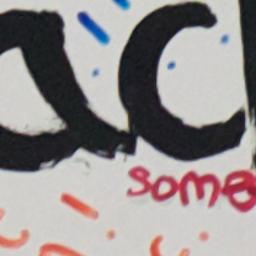 ac
some